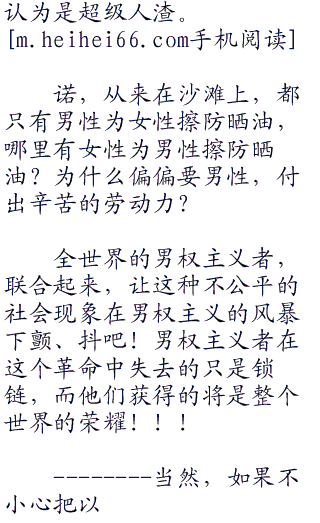 认为是超级人渣。
[m.heihei66.com手机阅读]
诺，从来在沙滩上，都
只有男性为女性擦防晒油，
哪里有女性为男性擦防晒
油？为什么偏偏要男性，付
出辛苦的劳动力？
全世界的男权主义者，
联合起来，让这种不公平的
社会现象在男权主义的风暴
下颤、抖吧！男权主义者在
这个革命中失去的只是锁
链，而他们获得的将是整个
世界的荣耀！！！
--------当然，如果不
小心把以